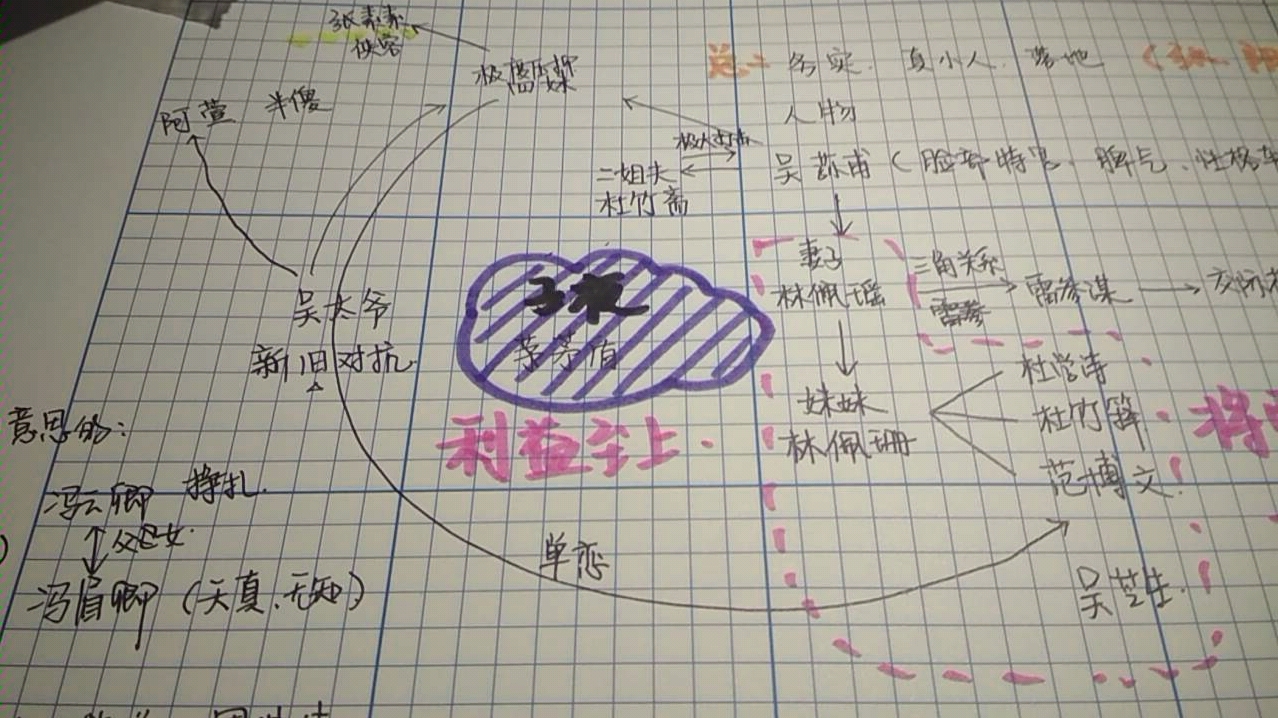 张素素
侠客
阿萱 半傻
务实. 真小人. 落地
人物
吴荪甫（脸部特写、脾气、性格
二姐夫
杜竹斋
妻子
林佩瑶
三角关系
雷参
雷参谋
妹妹
林佩珊
杜学诗
杜竹
范博文
吴芝生.
吴太爷
新旧对抗
子夜
利益至上.
单恋
意思的:
冯云卿 挣扎.
父女
冯眉卿（天真.无知）